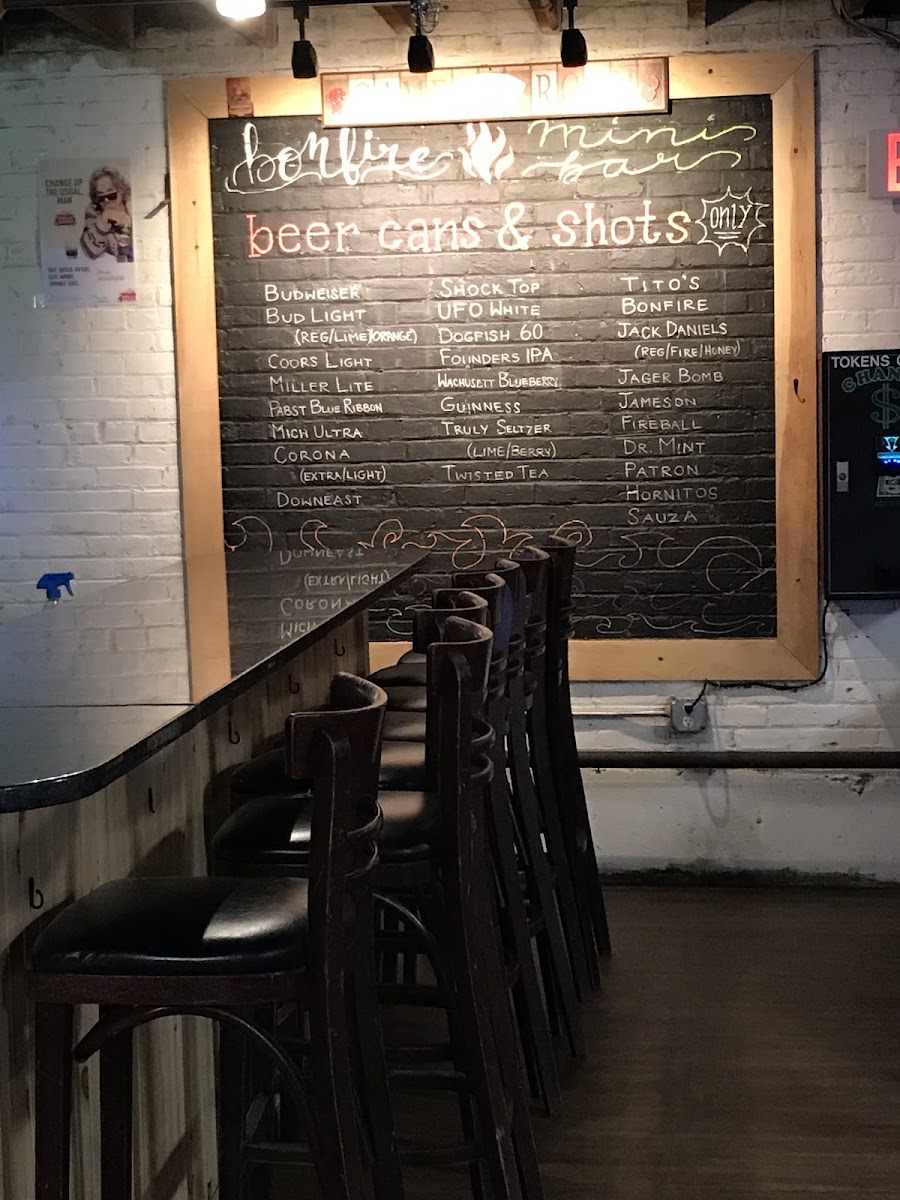 bonfire mini bar
beer cans & shots only
BUDWEISER
BUD LIGHT
(REG/LIME/ORANGE)
COORS LIGHT
MILLER LITE
PABST BLUE RIBBON
MICH ULTRA
CORONA
(EXTRA/LIGHT)
DOWNEAST
SHOCK TOP
UFO WHITE
DOGFISH 60
FOUNDERS IPA
WACHUSETT BLUEBERRY
GUINNESS
TRULY SELTZER
(LIME/BERRY)
TWISTED TEA
TITO'S
BONFIRE
JACK DANIELS
(REG/FIRE/HONEY)
JAGER BOMB
JAMESON
FIREBALL
DR. MINT
PATRON
HORNITOS
SAUZA
CHANGE UP
THE USUAL,
MAN
TOKENS
$